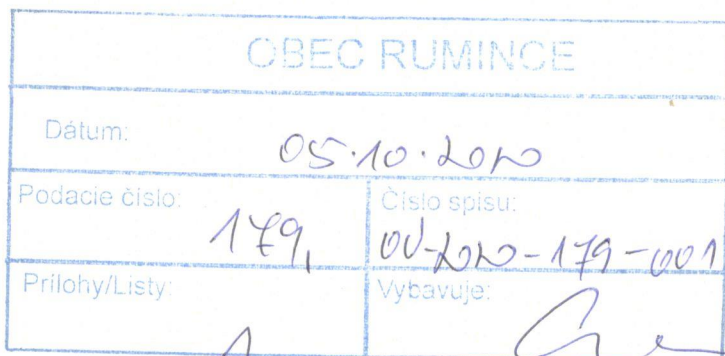 OBEC RUMINCE
Dátum: 05.10.2020
Podacie číslo: 179,
Číslo spisu: OÚ-2020-179-001
Prílohy/Listy: 1
Vybavuje: